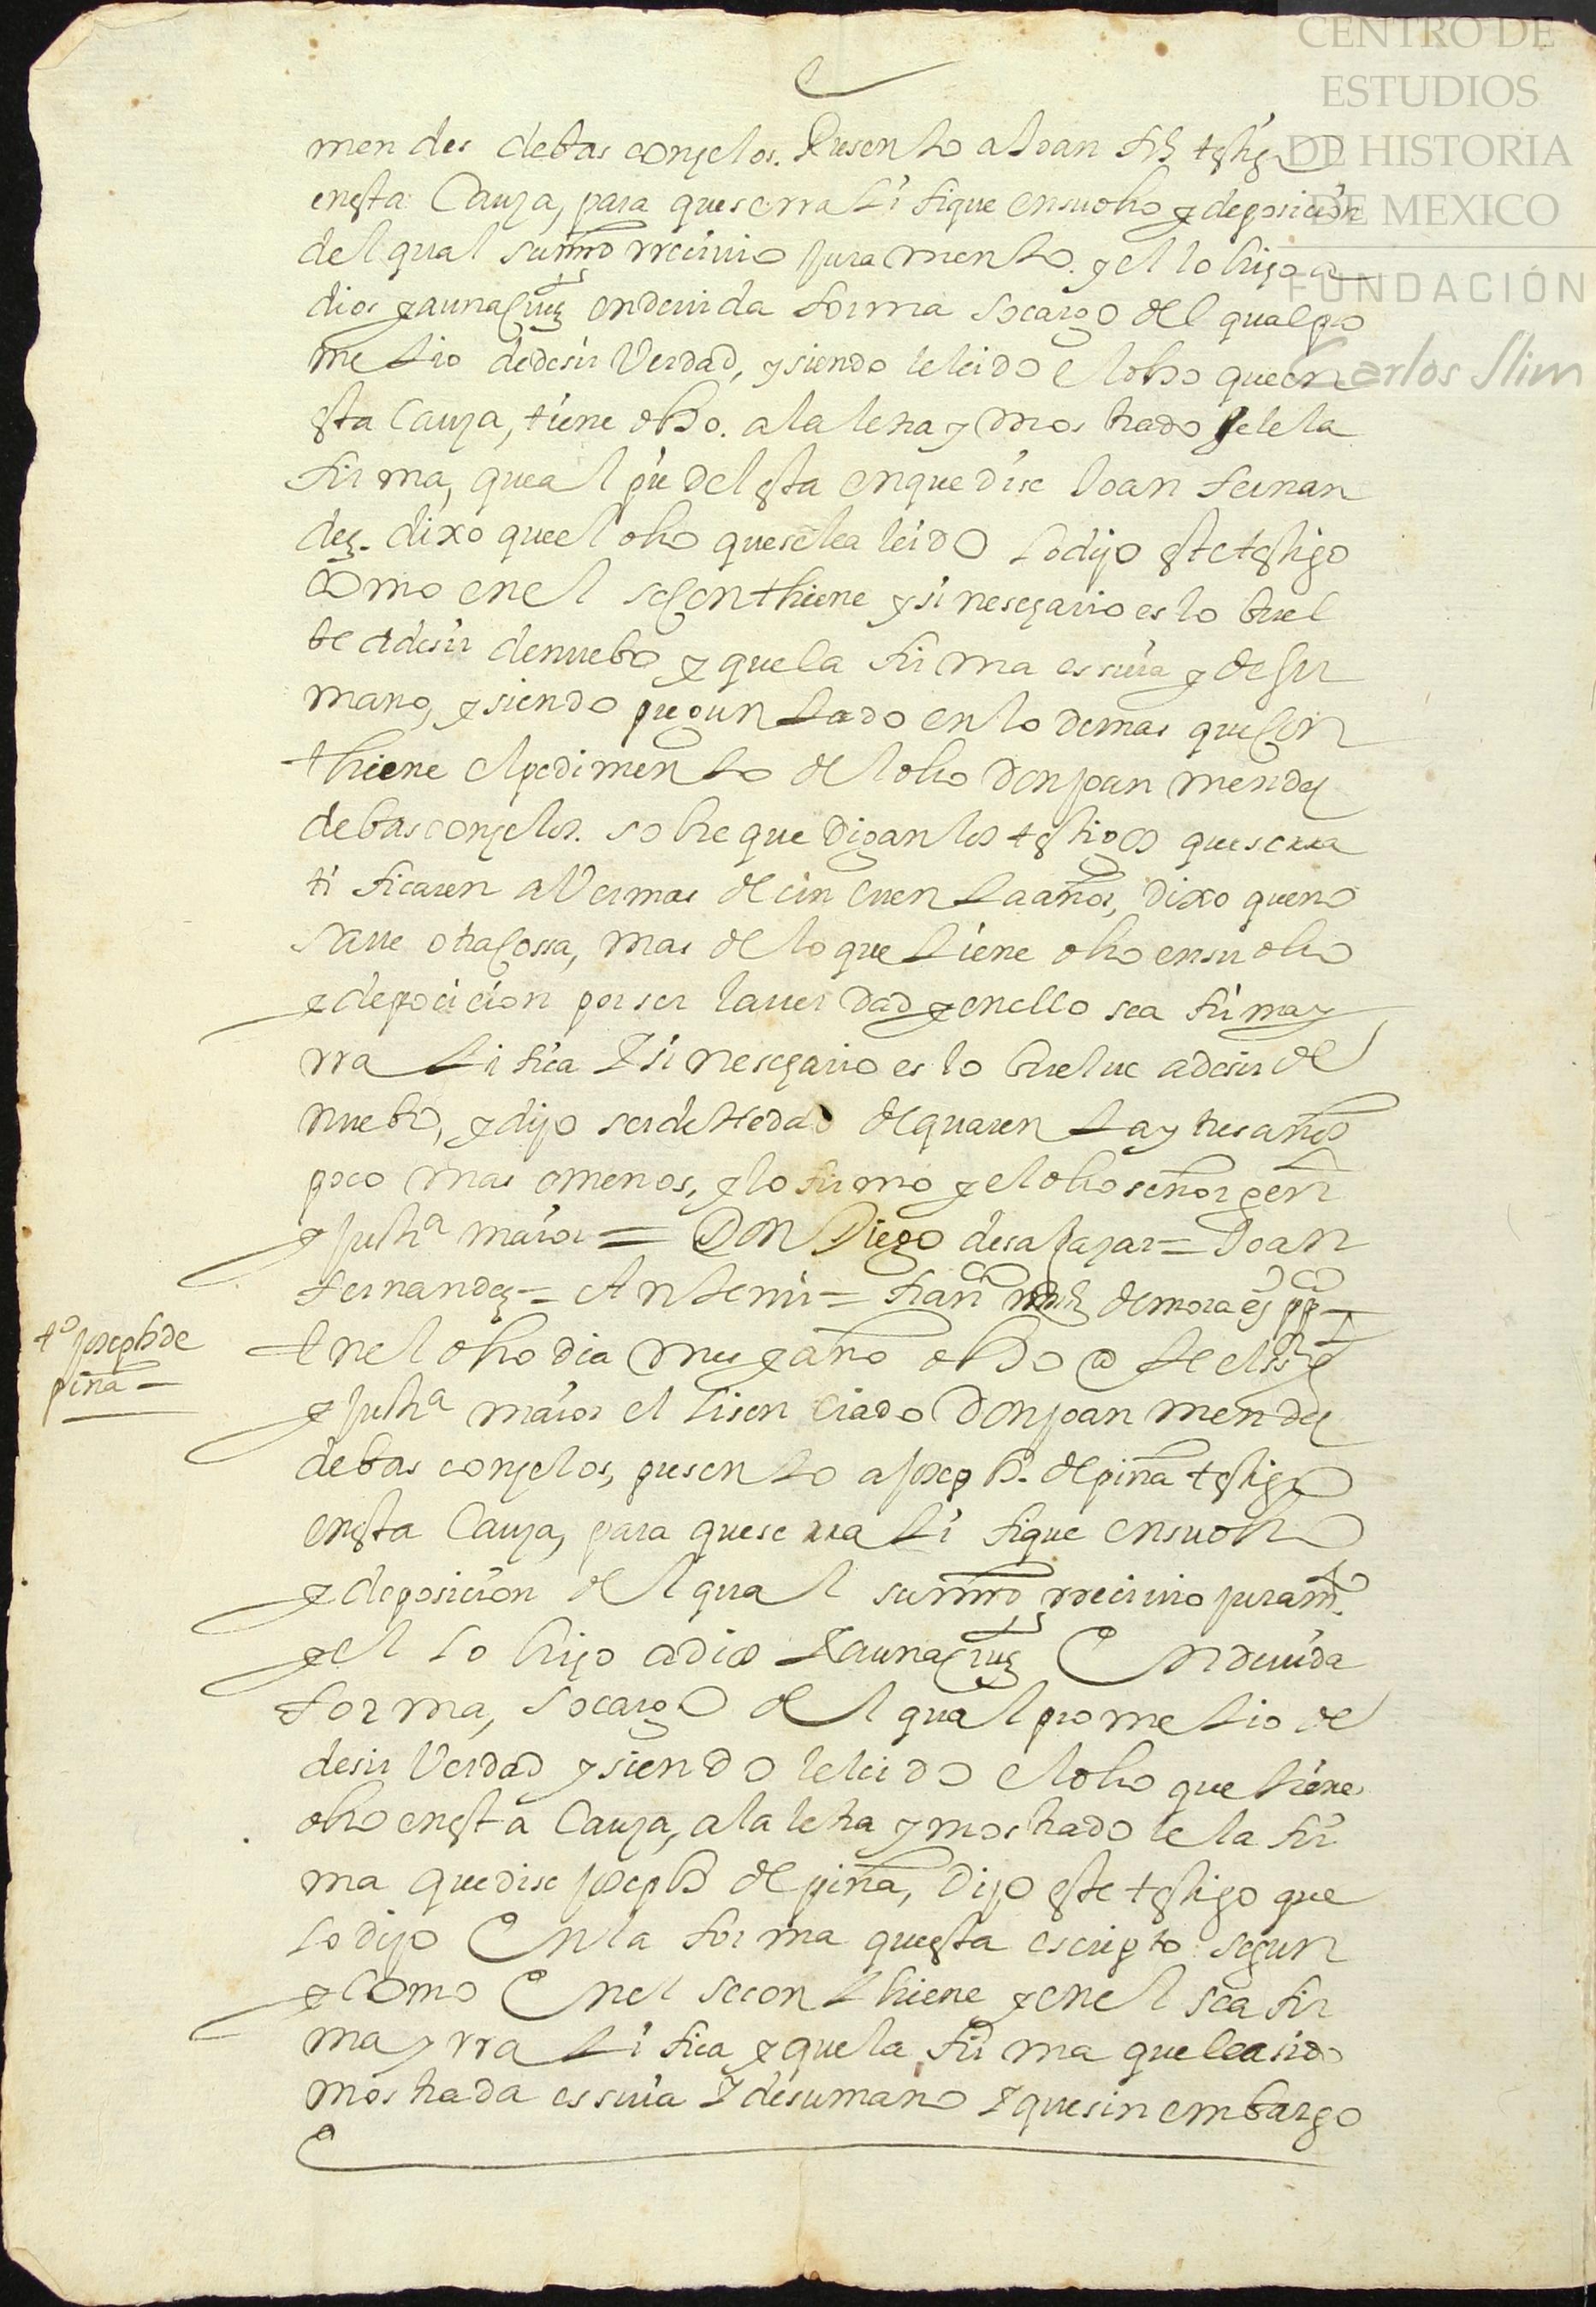 mendes debasconçelos. Presento a Joan frz testigo
enesta Cauza, para que serratifique ensudho y deposición
del qual sumrd rreciuio juramento. y el lo hizo a
dios y aunacruz endeuida forma socargo del qual pro
metio dedesir Verdad, y siendo leleido el dho queen
esta Cauza, tiene dho. alaletra y mostrado sele la
firma, queal pie del esta enque dise Joan fernan
dez. dixo queel dho quesele a leido lo dijo este testigo
como enel seconthiene y si nesesario es lo buel
be adesir denuebo y que la firma es suia y de su
mano, y siendo preguntado en lo demas que con
thiene el pedimento del dho don joan mendez
debasconçelos. sobre que digan los testigos que serra
tificaren aVer mas de cincuenta años, dixo queno
saue otra cossa, mas de lo que tiene dho ensu dho
y deposicion por ser lauerdad y enello sea firma y
rratifica Y si nesesario es lo buelue adesir de
nuebo, y dijo ser de hedad de quarenta y tres años
poco mas omenos, y lo firmó y el dho señor gen
y justia maior = Don Diego desalazar = Joan
fernandez = Ante mi = fran mrz demora es pp =
to joseph de
piña =
Enel dho dia mes y año dho ante el sr g
y justia maior el lisenciado Don joan mendez
debasconçelos, presento a joseph. de piña testigo
enesta Cauza, para que se rratifique ensu dho
y deposicion del qual sumrd rreciuio juramto.
y el lo hizo adios Y aunacruz Endeuida
forma, socargo del qual prometio de
desir Verdad y siendo leleido el dho que tiene
dho enesta Cauza, alaletra y mostradole la fir
ma que dise joseph de piña, Dijo este testigo que
lo dijo En la forma questa escripto segun
y como Enel seconthiene y enel sea fir
ma y rratifica y que la firma que lea sido
mostrada es suia Y desumano Y quesin embargo
CENTRO DE
ESTUDIOS
DE HISTORIA
DE MEXICO
FUNDACIÓN
Carlos Slim